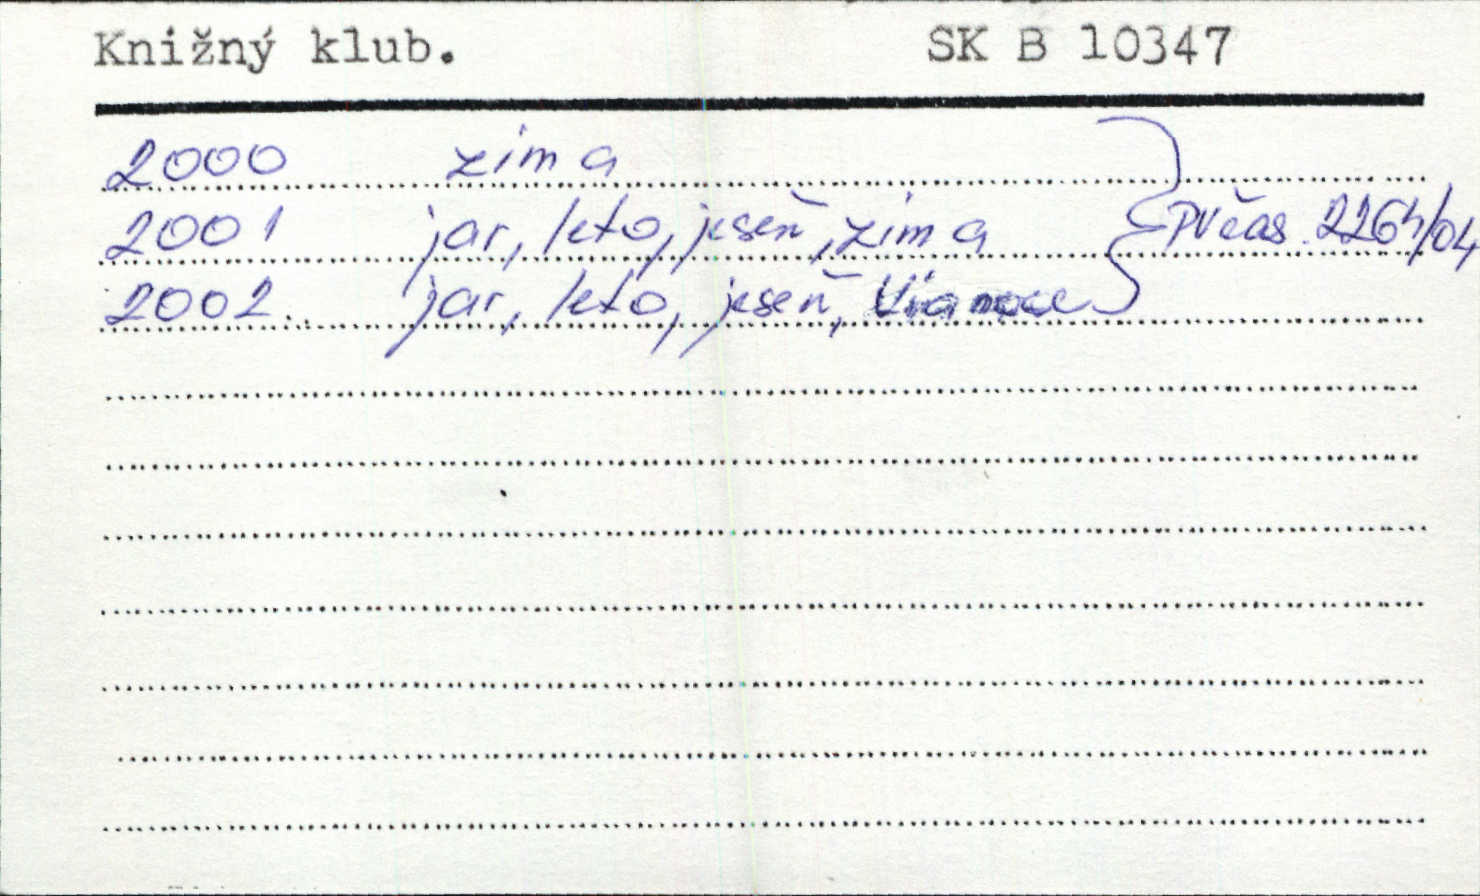 Knižný klub. SK B 10347
2000 zima
2001 jar, leto, jeseň, zima PVčas. 2264/04
2002 jar, leto, jeseň, Vianoce